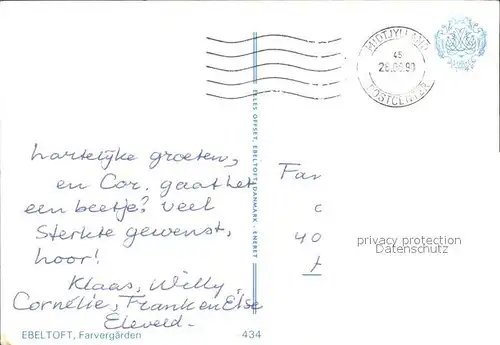 MIDTJYLLAND
45
26.06.90
POSTCENTER
hartelijke groeten,
en Cor. gaat het
een beetje? veel
Sterkte gewenst,
hoor!
Klaas, Willy,
Cornélie, Frank en Else
Eleveld.
Fam
40
privacy protection
Datenschutz
ELLES OFFSET, EBELTOFT, DANMARK - ENERET
EBELTOFT, Farvergården
434